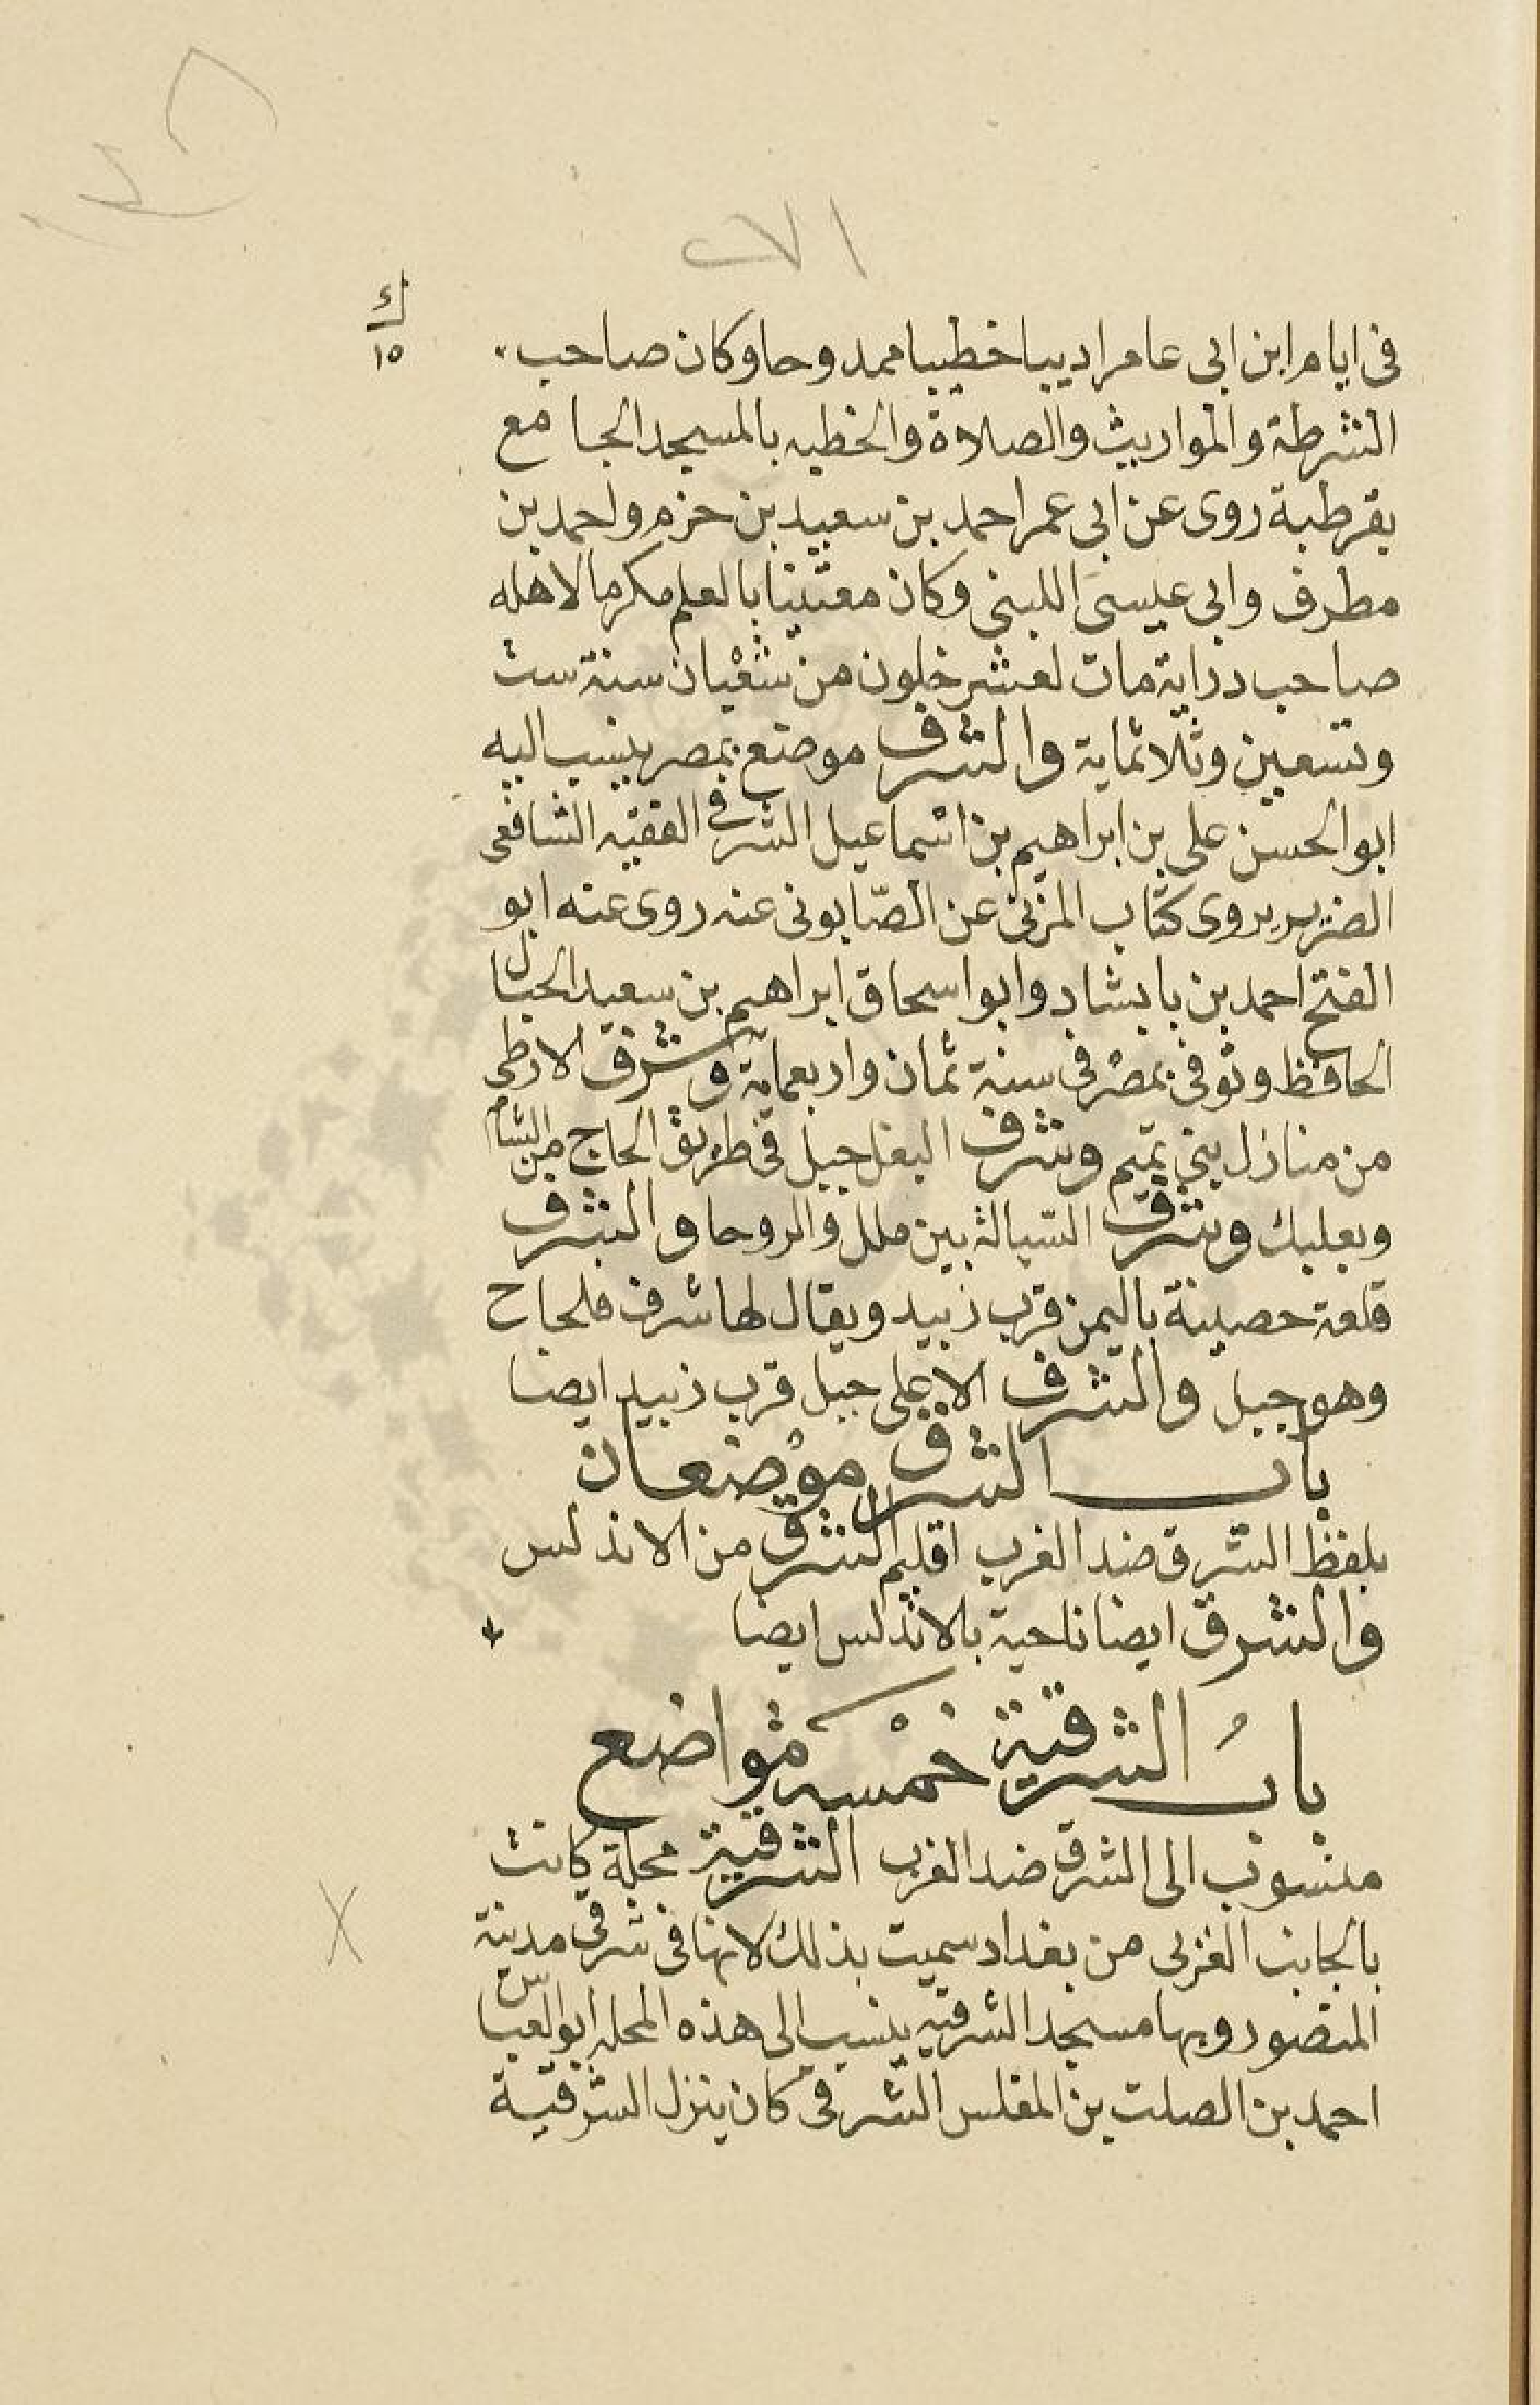 في ايام ابن ابي عامر اديبا خطيبا ممدوحا وكان صاحب
الشرطة والمواريث والصلاة والخطبه بالمسجد الجامع
بقرطبة روى عن ابي عمر احمد بن سعيد بن حزم واحمد بن
مطرف وابي عيسى الليثي وكان معتنيا بالعلم مكرما لاهله
صاحب دراية مات لعشر خلون من شعبان سنة ست
وتسعين وثلاثماية والشرف موضع بمصر ينسب اليه
ابو الحسن علي بن ابراهيم بن اسماعيل الشرفي الفقيه الشافعي
الضرير يروى كتاب المزني عن الصّابوني عنه روى عنه ابو
الفتح احمد بن بابشاد وابو اسحاق ابراهيم بن سعيد الحبال
الحافظ وتوفي بمصر في سنة ثمان واربعماية وشرف الارطى
من منازل بني تميم وشرف البعل جبل في طريق الحاج من الشام
وبعلبك وشرف السّيالة بين ملل والروحا والشرف
قلعة حصينة باليمن قرب زبيد ويقال لها شرف قلحاح
وهو جبل والشرف الاعلى جبل قرب زبيد ايضا
باب الشرق موضعان
بلفظ الشرق ضد الغرب اقليم الشرق من الاندلس
والشرق ايضا ناحية بالاندلس ايضا
بابُ الشرقية خمسه مواضع
منسوب الى الشرق ضد الغرب الشرقية محلة كانت
بالجانب الغربي من بغداد سميت بذلك لانها في شرقي مدينة
المنصور وبها مسجد الشرقيه ينسب الى هذه المحله ابو العباس
احمد بن الصلت بن المغلس الشرقي كان ينزل الشرقية
١٥